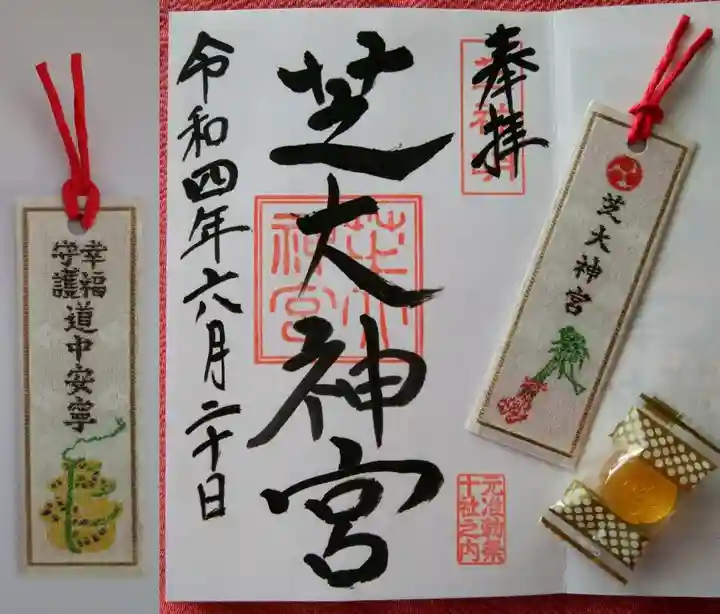 奉拝
芝大神宮
令和四年六月二十日
芝大
神宮
元准勅祭
十社之内
芝大神宮
幸福
守護
道中安寧